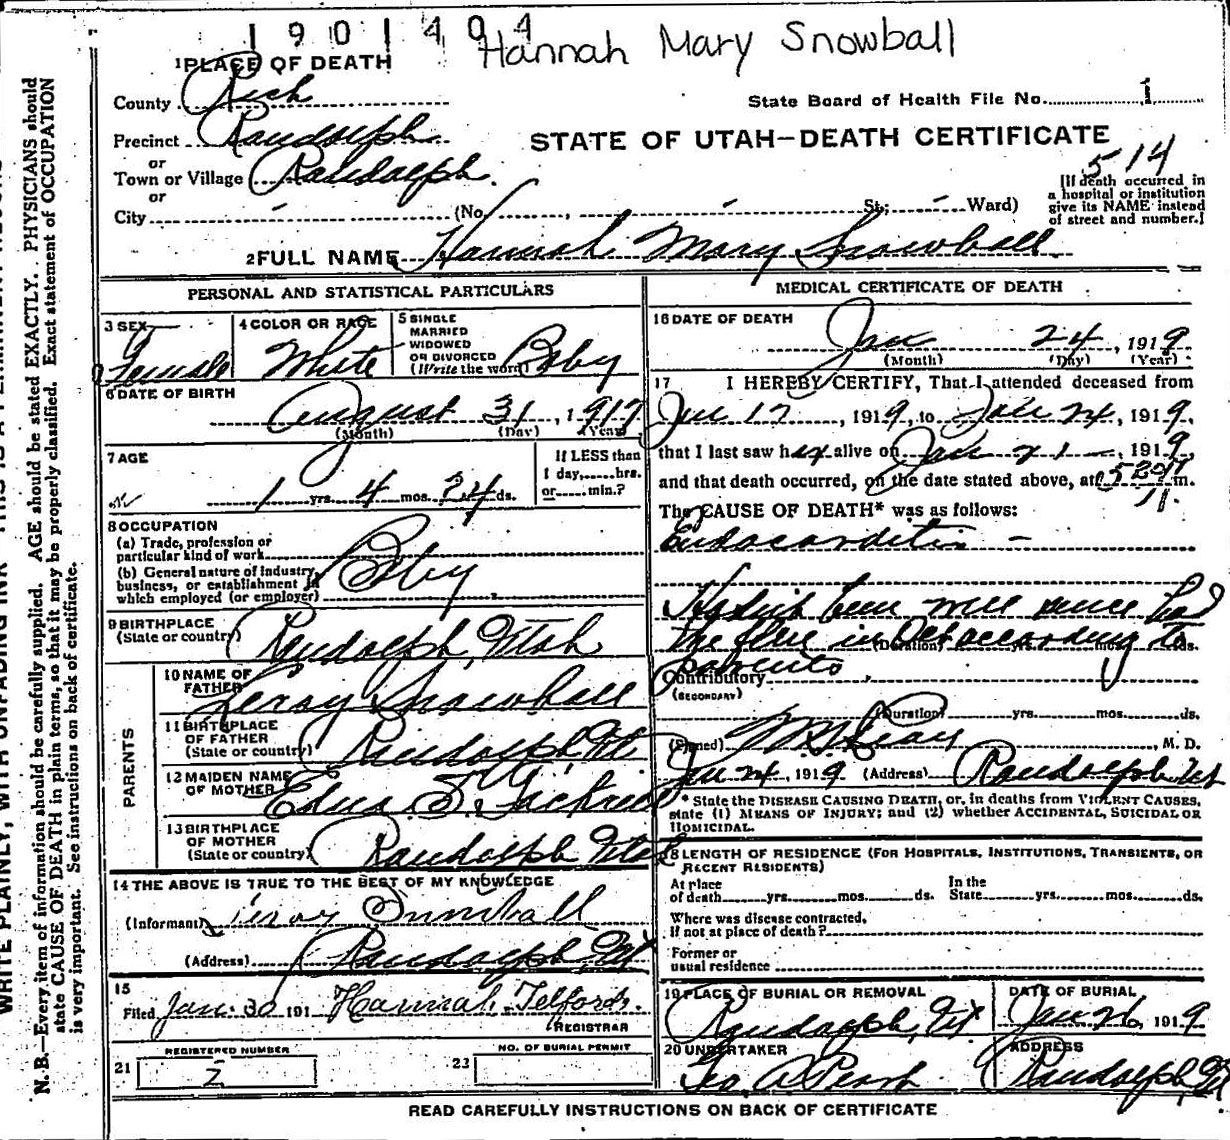 1901404
Hannah Mary Snowball
1 PLACE OF DEATH
County Rich
State Board of Health File No. 1
Precinct Randolph
STATE OF UTAH—DEATH CERTIFICATE
or
514
Town or Village Randolph.
or
[If death occurred in
a hospital or institution
give its NAME instead
of street and number.]
City - (No. , - St.; - Ward)
2 FULL NAME Hannah Mary Snowball
PERSONAL AND STATISTICAL PARTICULARS
3 SEX
Female
4 COLOR OR RACE
White
5 SINGLE
MARRIED
WIDOWED
OR DIVORCED
(Write the word) Baby
6 DATE OF BIRTH
August 31, 1917
(Month) (Day) (Year)
7 AGE
1 yrs. 4 mos. 24 ds.
If LESS than
1 day,......hrs.
or......min.?
8 OCCUPATION
(a) Trade, profession or
particular kind of work
(b) General nature of industry,
business, or establishment in
which employed (or employer)
Baby
9 BIRTHPLACE
(State or country) Randolph, Utah
PARENTS
10 NAME OF
FATHER Leroy Snowball
11 BIRTHPLACE
OF FATHER
(State or country) Randolph, Ut
12 MAIDEN NAME
OF MOTHER Edna
13 BIRTHPLACE
OF MOTHER
(State or country) Randolph Utah
14 THE ABOVE IS TRUE TO THE BEST OF MY KNOWLEDGE
(Informant) Leroy Snowball
(Address) Randolph, Ut
15
Filed Jan. 30 191 Hannah Telford.
REGISTRAR
REGISTERED NUMBER
21 2
NO. OF BURIAL PERMIT
23
MEDICAL CERTIFICATE OF DEATH
16 DATE OF DEATH
Jan 24, 1919
(Month) (Day) (Year)
17 I HEREBY CERTIFY, That I attended deceased from
Jan 17, 1919, to Jan 24, 1919,
that I last saw her alive on Jan 21, 1919,
and that death occurred, on the date stated above, at 520 m.
The CAUSE OF DEATH* was as follows:
Endocarditis -
Hasn't been well since had
the flue in Oct according to
(Duration) yrs. mos. ds.
parents
Contributory
(SECONDARY)
(Duration) yrs. mos. ds.
(Signed) , M. D.
Jan 24, 1919 (Address) Randolph Ut
* State the DISEASE CAUSING DEATH, or, in deaths from VIOLENT CAUSES,
state (1) MEANS OF INJURY; and (2) whether ACCIDENTAL, SUICIDAL OR
HOMICIDAL.
18 LENGTH OF RESIDENCE (FOR HOSPITALS, INSTITUTIONS, TRANSIENTS, OR
RECENT RESIDENTS)
At place In the
of death yrs. mos. ds. State yrs. mos. ds.
Where was disease contracted,
if not at place of death?
Former or
usual residence
19 PLACE OF BURIAL OR REMOVAL
Randolph, Ut
DATE OF BURIAL
Jan 26, 1919
20 UNDERTAKER
Geo. A. Pearl
ADDRESS
Randolph, Ut
READ CAREFULLY INSTRUCTIONS ON BACK OF CERTIFICATE
N. B.—Every item of information should be carefully supplied. AGE should be stated EXACTLY. PHYSICIANS should
state CAUSE OF DEATH in plain terms, so that it may be properly classified. Exact statement of OCCUPATION
is very important. See instructions on back of certificate.